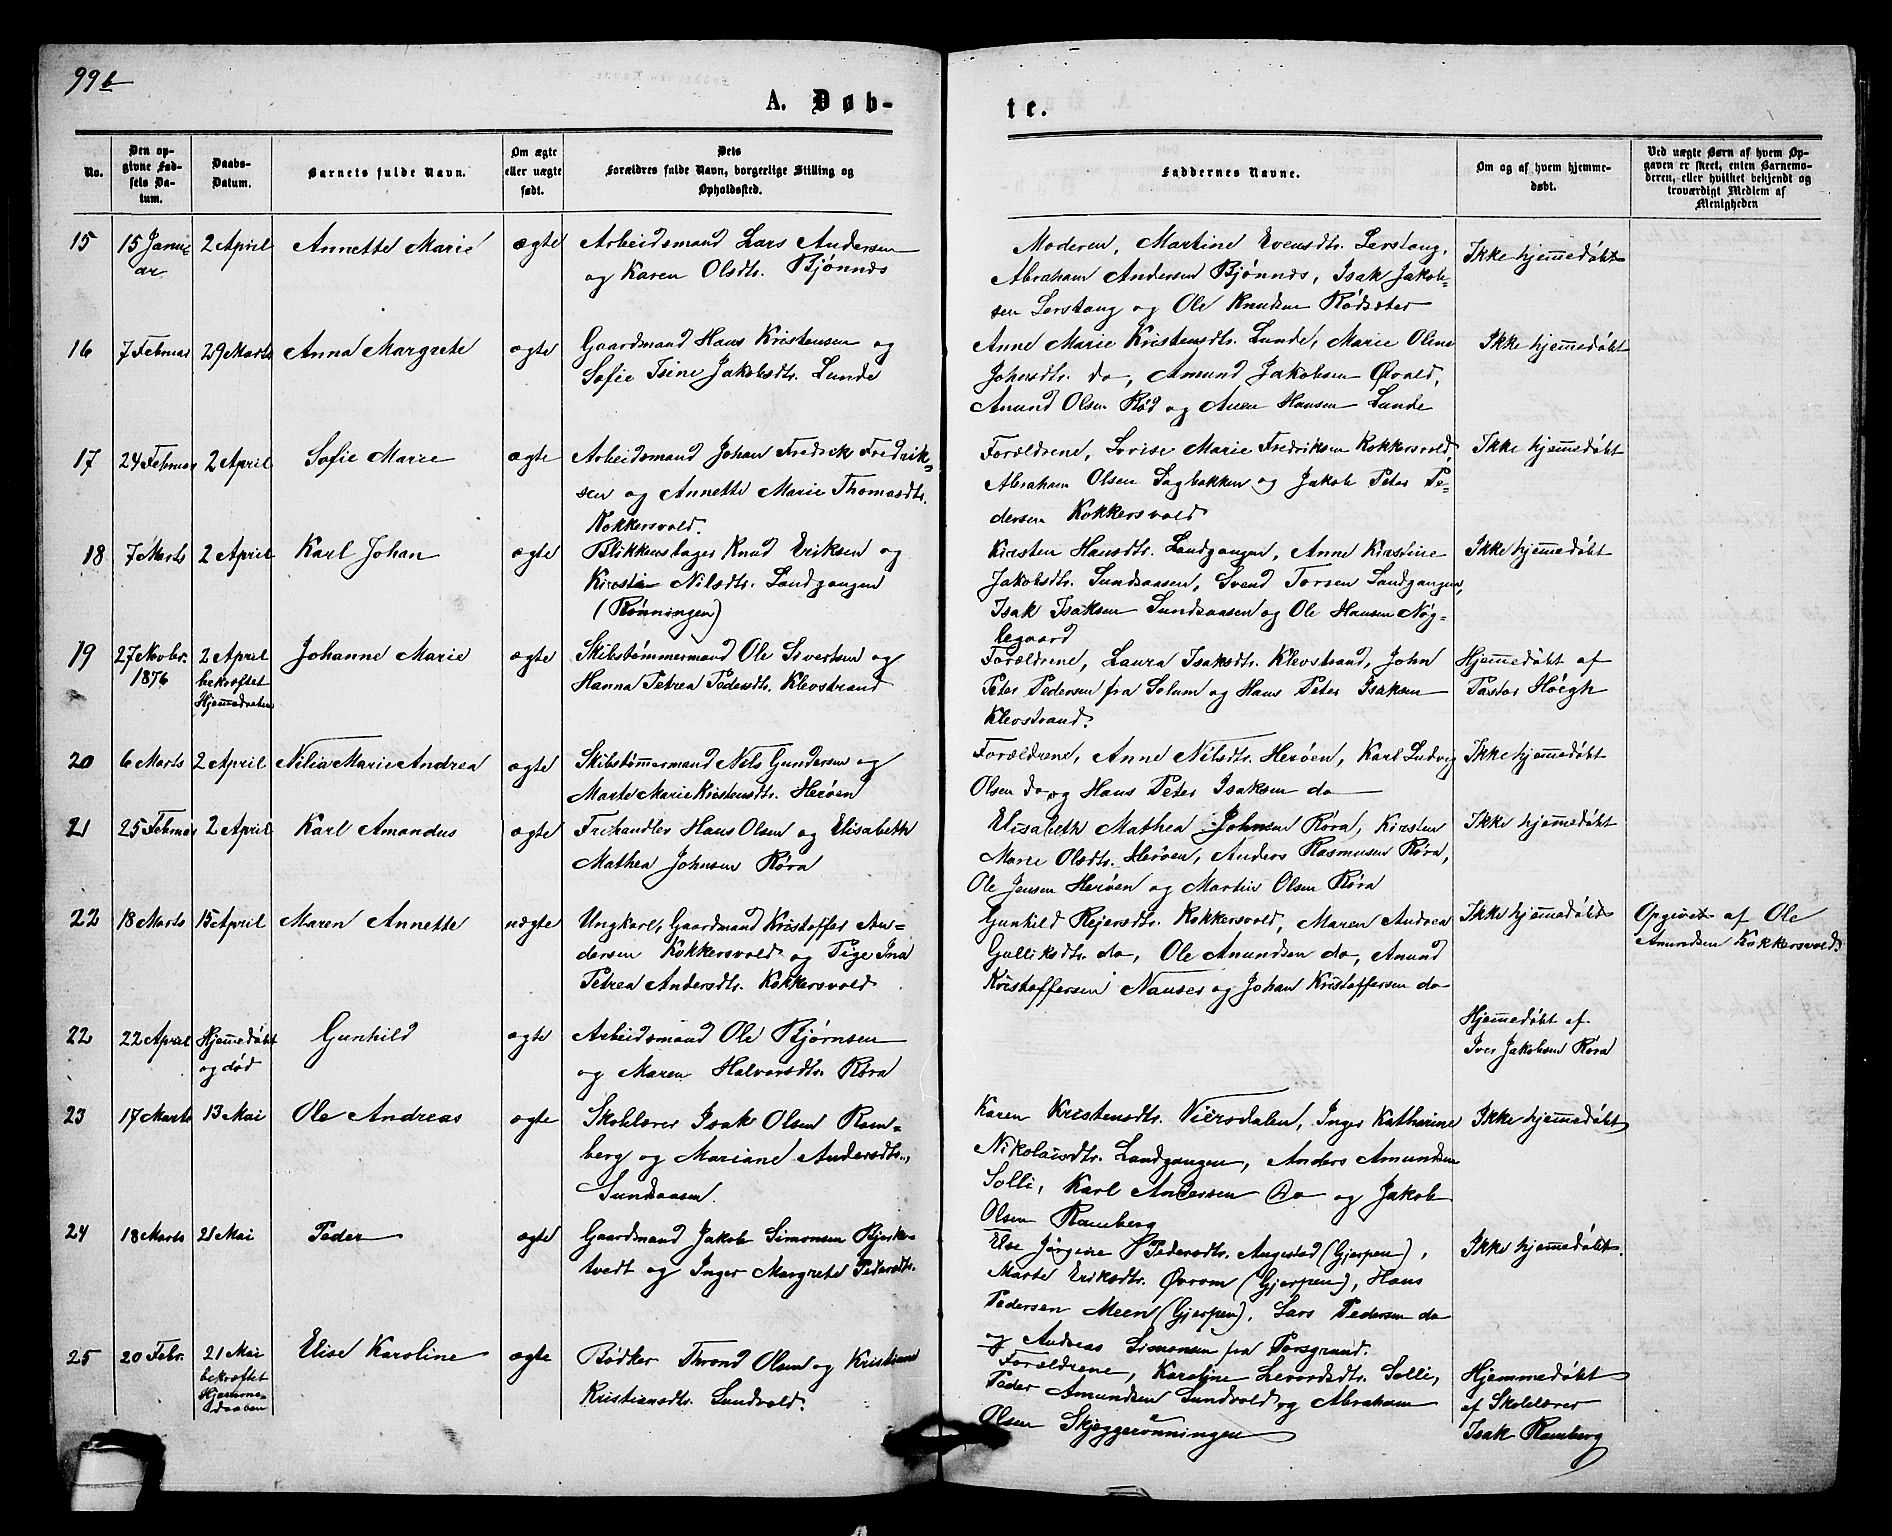 99b
A. Døb-
te.
No.
Den op-
givne Fød-
sels Da-
tum.
Daabs-
Datum.
Barnets fulde Navn.
Om ægte
eller uægte
født.
Dets
Forældres fulde Navn, borgerlige Stilling og
Opholdssted.
Faddernes Navne.
Om og af hvem hjemme-
døbt.
Ved uægte Børn af hvem Op-
gaven er skeet, enten Barnemo-
deren, eller hvilket bekjendt og
troværdigt Medlem af
Menigheden
15
15 Janu-
ar
2 April
Annette Marie
ægte
Arbeidsmand Lars Andersen
og Karen Olsdtr. Bjønnes
Moderen, Martine Evensdtr. Lerstang,
Abraham Andersen Bjønnes, Isak Jakob-
sen Lerstang og Ole Knudsen Rødsæter
Ikke hjemmedøbt
16
7 Februar
29 Marts
Anna Margrete
ægte
Gaardmand Hans Kristensen og
Sofie Tsine Jakobsdtr. Lunde
Anne Marie Kristensdtr. Lunde, Marie Oline
Johsdtr. do, Amund Jakobsen Øvald,
Anund Olsen Rød og Anen Hansen Lunde
Ikke hjemmedøbt
17
24 Februar
2 April
Sofie Marie
ægte
Arbeidsmand Johan Fredrik Fredrik-
sen og Annette Marie Thomasdtr.
Kokkersvold.
Forældrene, Lovise Marie Fredriksen Kokkersvold,
Abraham Olsen Sagbakken og Jakob Peter Pe-
dersen Kokkersvold
Ikke hjemmedøbt
18
7 Marts
2 April
Karl Johan
ægte
Blikkenslager Knud Eriksen og
Kirstin Nilsdtr. Landgangen
(Rønningen)
Kirsten Hansdtr. Landgangen, Anne Kirstine
Jakobsdtr. Sundsaasen, Svend Torsen Landgangen,
Isak Isaksen Sundsaasen og Ole Hansen Nøg-
legaard
Ikke hjemmedøbt
19
27 Novbr.
1876
2 April
bekræftet
Hjemmedaaben
Johanne Marie
ægte
Skibstømmermand Ole Sivertsen og
Hanna Petrea Pedersdtr. Klevstrand
Forældrene, Laura Isaksdtr. Klevstrand, John
Peter Pedersen fra Solum og Hans Peter Isaksen
Klevstrand.
Hjemmedøbt af
Pastor Høegh
20
6 Marts
2 April
Nilia Marie Andrea
ægte
Skibstømmermand Nils Gundersen og
Marte Marie Kirstensdtr. Herøen
Forældrene, Anne Nilsdtr. Herøen, Karl Ludvig
Olsen do, og Hans Peter Isaksen do
Ikke hjemmedøbt
21
25 Februar
2 April
Karl Amandus
ægte
Frihandler Hans Olsen og Elisabeth
Mathea Johnsen Røra
Elisabeth Mathea Johnsen Røra, Kirsten
Marie Olsdtr. Herøen, Anders Rasmusen Røra,
Ole Jensen Herøen og Martin Olsen Røra
Ikke hjemmedøbt
22
18 Marts
15 April
Maren Annette
uægte
Ungkarl, Gaardmand Kristoffer An-
dersen Kokkersvold og Pige Ina
Petrea Andersdtr. Kokkersvold
Gunhild Rejersdtr. Kokkersvold, Maren Andrea
Gulliksdtr. do, Ole Amundsen do, Amund
Kristoffersen Nauses og Johan Kristoffersen do
Ikke hjemmedøbt
Opgivet af Ole
Amundsen Kokkersvold.
22
22 April
Hjemmedøbt
og død
Gunhild
ægte
Arbeidsmand Ole Bjørnsen
og Maren Halvorsdtr. Røra
Hjemmedøbt af
Iver Jakobsen Røra
23
17 Marts
13 Mai
Ole Andreas
ægte
Skolelærer Isak Olsen Ram-
berg og Mariane Andersdtr.,
Sundsaasen.
Karen Kristensdtr. Viersdalen, Inger Katharine
Nikolaisdtr. Landgangen, Anders Amundsen
Solli, Karl Andersen do og Jakob
Olsen Ramberg
Ikke hjemmedøbt
24
18 Marts
21 Mai
Peder
ægte
Gaardmand Jakob Simonsen Bjerke-
tvedt og Inger Margrete Pedersdtr.
Else Jørgine Pedersdtr. Augestad (Gjerpen),
Marte Eriksdtr. Øvrom (Gjerpen), Hans
Pedersen Meen (Gjerpen), Lars Pedersen do
og Andreas Simonsen fra Porsgrund.
Ikke hjemmedøbt.
25
20 Febr.
21 Mai
bekræftet
Hjemme-
daaben
Elise Karoline
ægte
Bødker Thrond Olsen og Kristiane
Kristiansdtr. Sundvold.
Forældrene, Karoline Levordsdtr. Solli,
Peder Amundsen Sundvold, og Abraham
Olsen Skjeggerønningen
Hjemmedøbt
af Skolelærer
Isak Ramberg